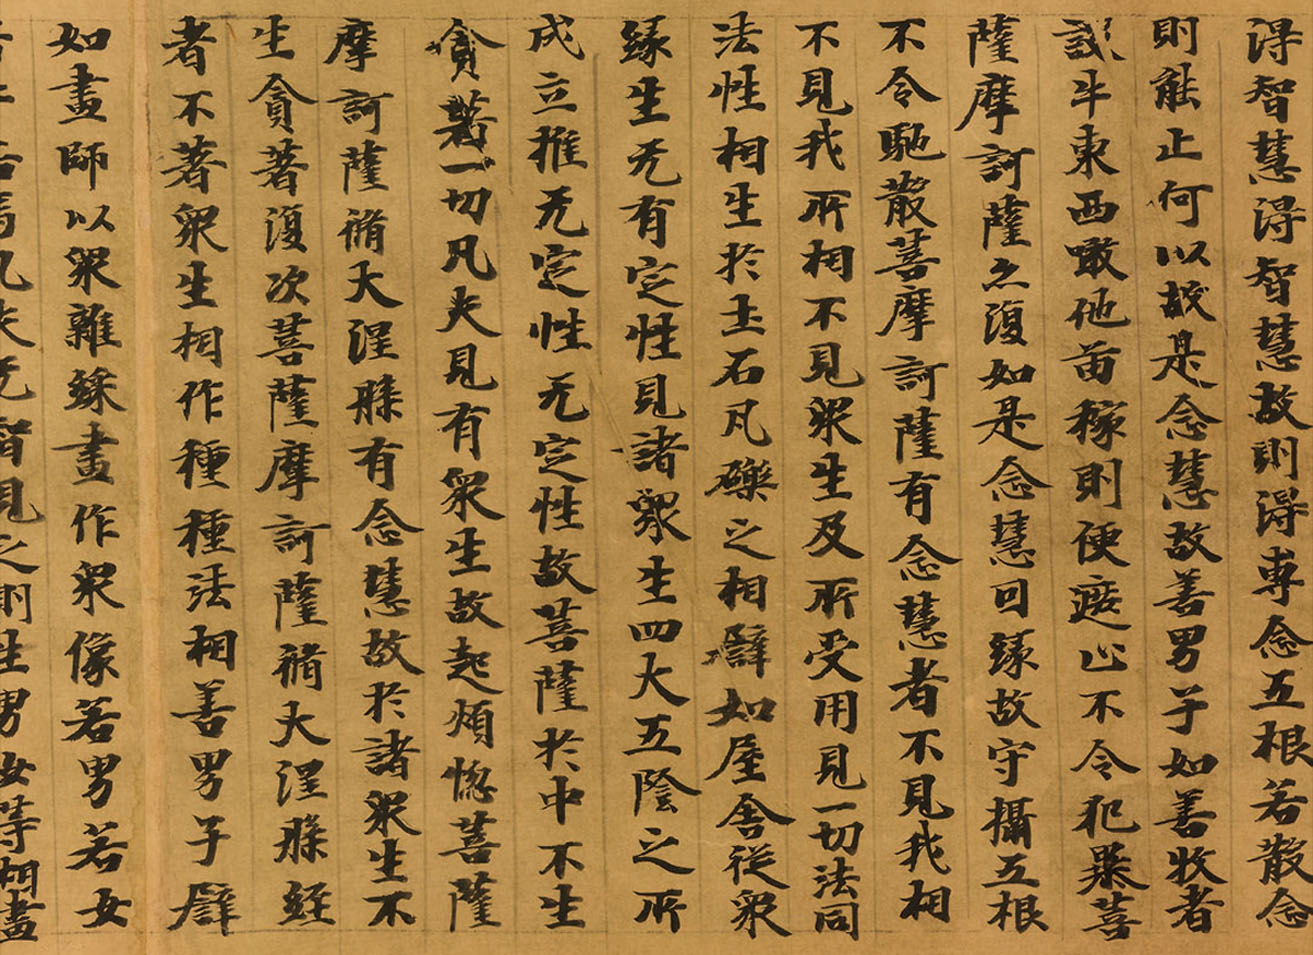 得智慧得智慧故則得専念五根若散念
則能止何以故是念慧故善男子如善牧者
設牛東西噉他苗稼則便遮止不令犯暴菩
薩摩訶薩亦復如是念慧因緣故守攝五根
不令馳散菩摩訶薩有念慧者不見我相
不見我所相不見衆生及所受用見一切法同
法性相生於土石凡礫之相譬如屋舍從衆
緣生无有定性見諸衆生四大五陰之所
成立推无定性无定性故菩薩於中不生
貪著一切凡夫見有衆生故起煩惱菩薩
摩訶薩脩大涅槃有念慧故於諸衆生不
生貪著復次菩薩摩訶薩脩大涅槃經
者不著衆生相作種種法相善男子譬
如畫師以衆雜綵畫作衆像若男若女
若牛若馬凡夫无智見之則生男女等相畫